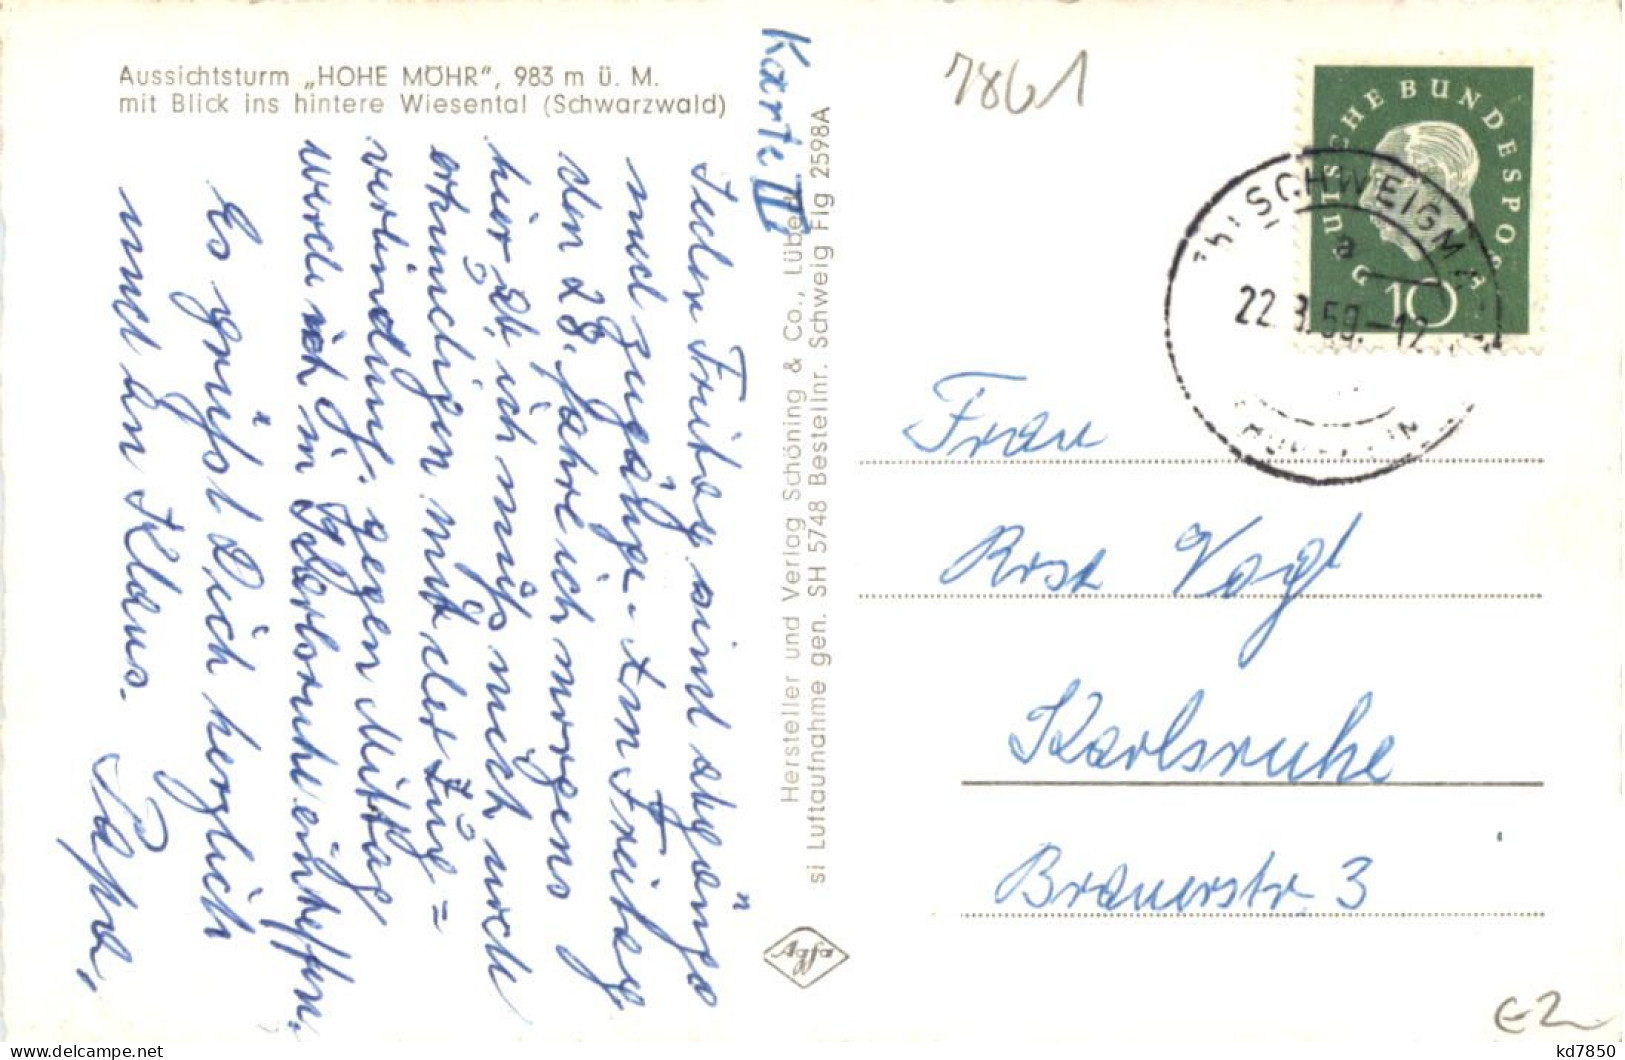 Aussichtsturm „HOHE MÖHR", 983 m ü. M.
mit Blick ins hintere Wiesental (Schwarzwald)
Karte II
Jeden Freitag sind
und zugänge. Am Freitag
den 28. fahre ich morgens
hier ab, ich muß mich noch
erkundigen mit der Zug=
verbindung. gegen Mittag
werde ich in Karlsruhe eintreffen.
Es grüßt Dich herzlich
und den Klaus.
Papa,
Hersteller und Verlag Schöning & Co., Lübeck
si Luftaufnahme gen. SH 5748 Bestellnr. Schweig Flg 2598A
7861
DEUTSCHE BUNDESPOST
10
SCHWEIGM
a
22. 8. 59.-12
Frau
Rosa Vogt
Karlsruhe
Brauerstr. 3
€2
kd7850